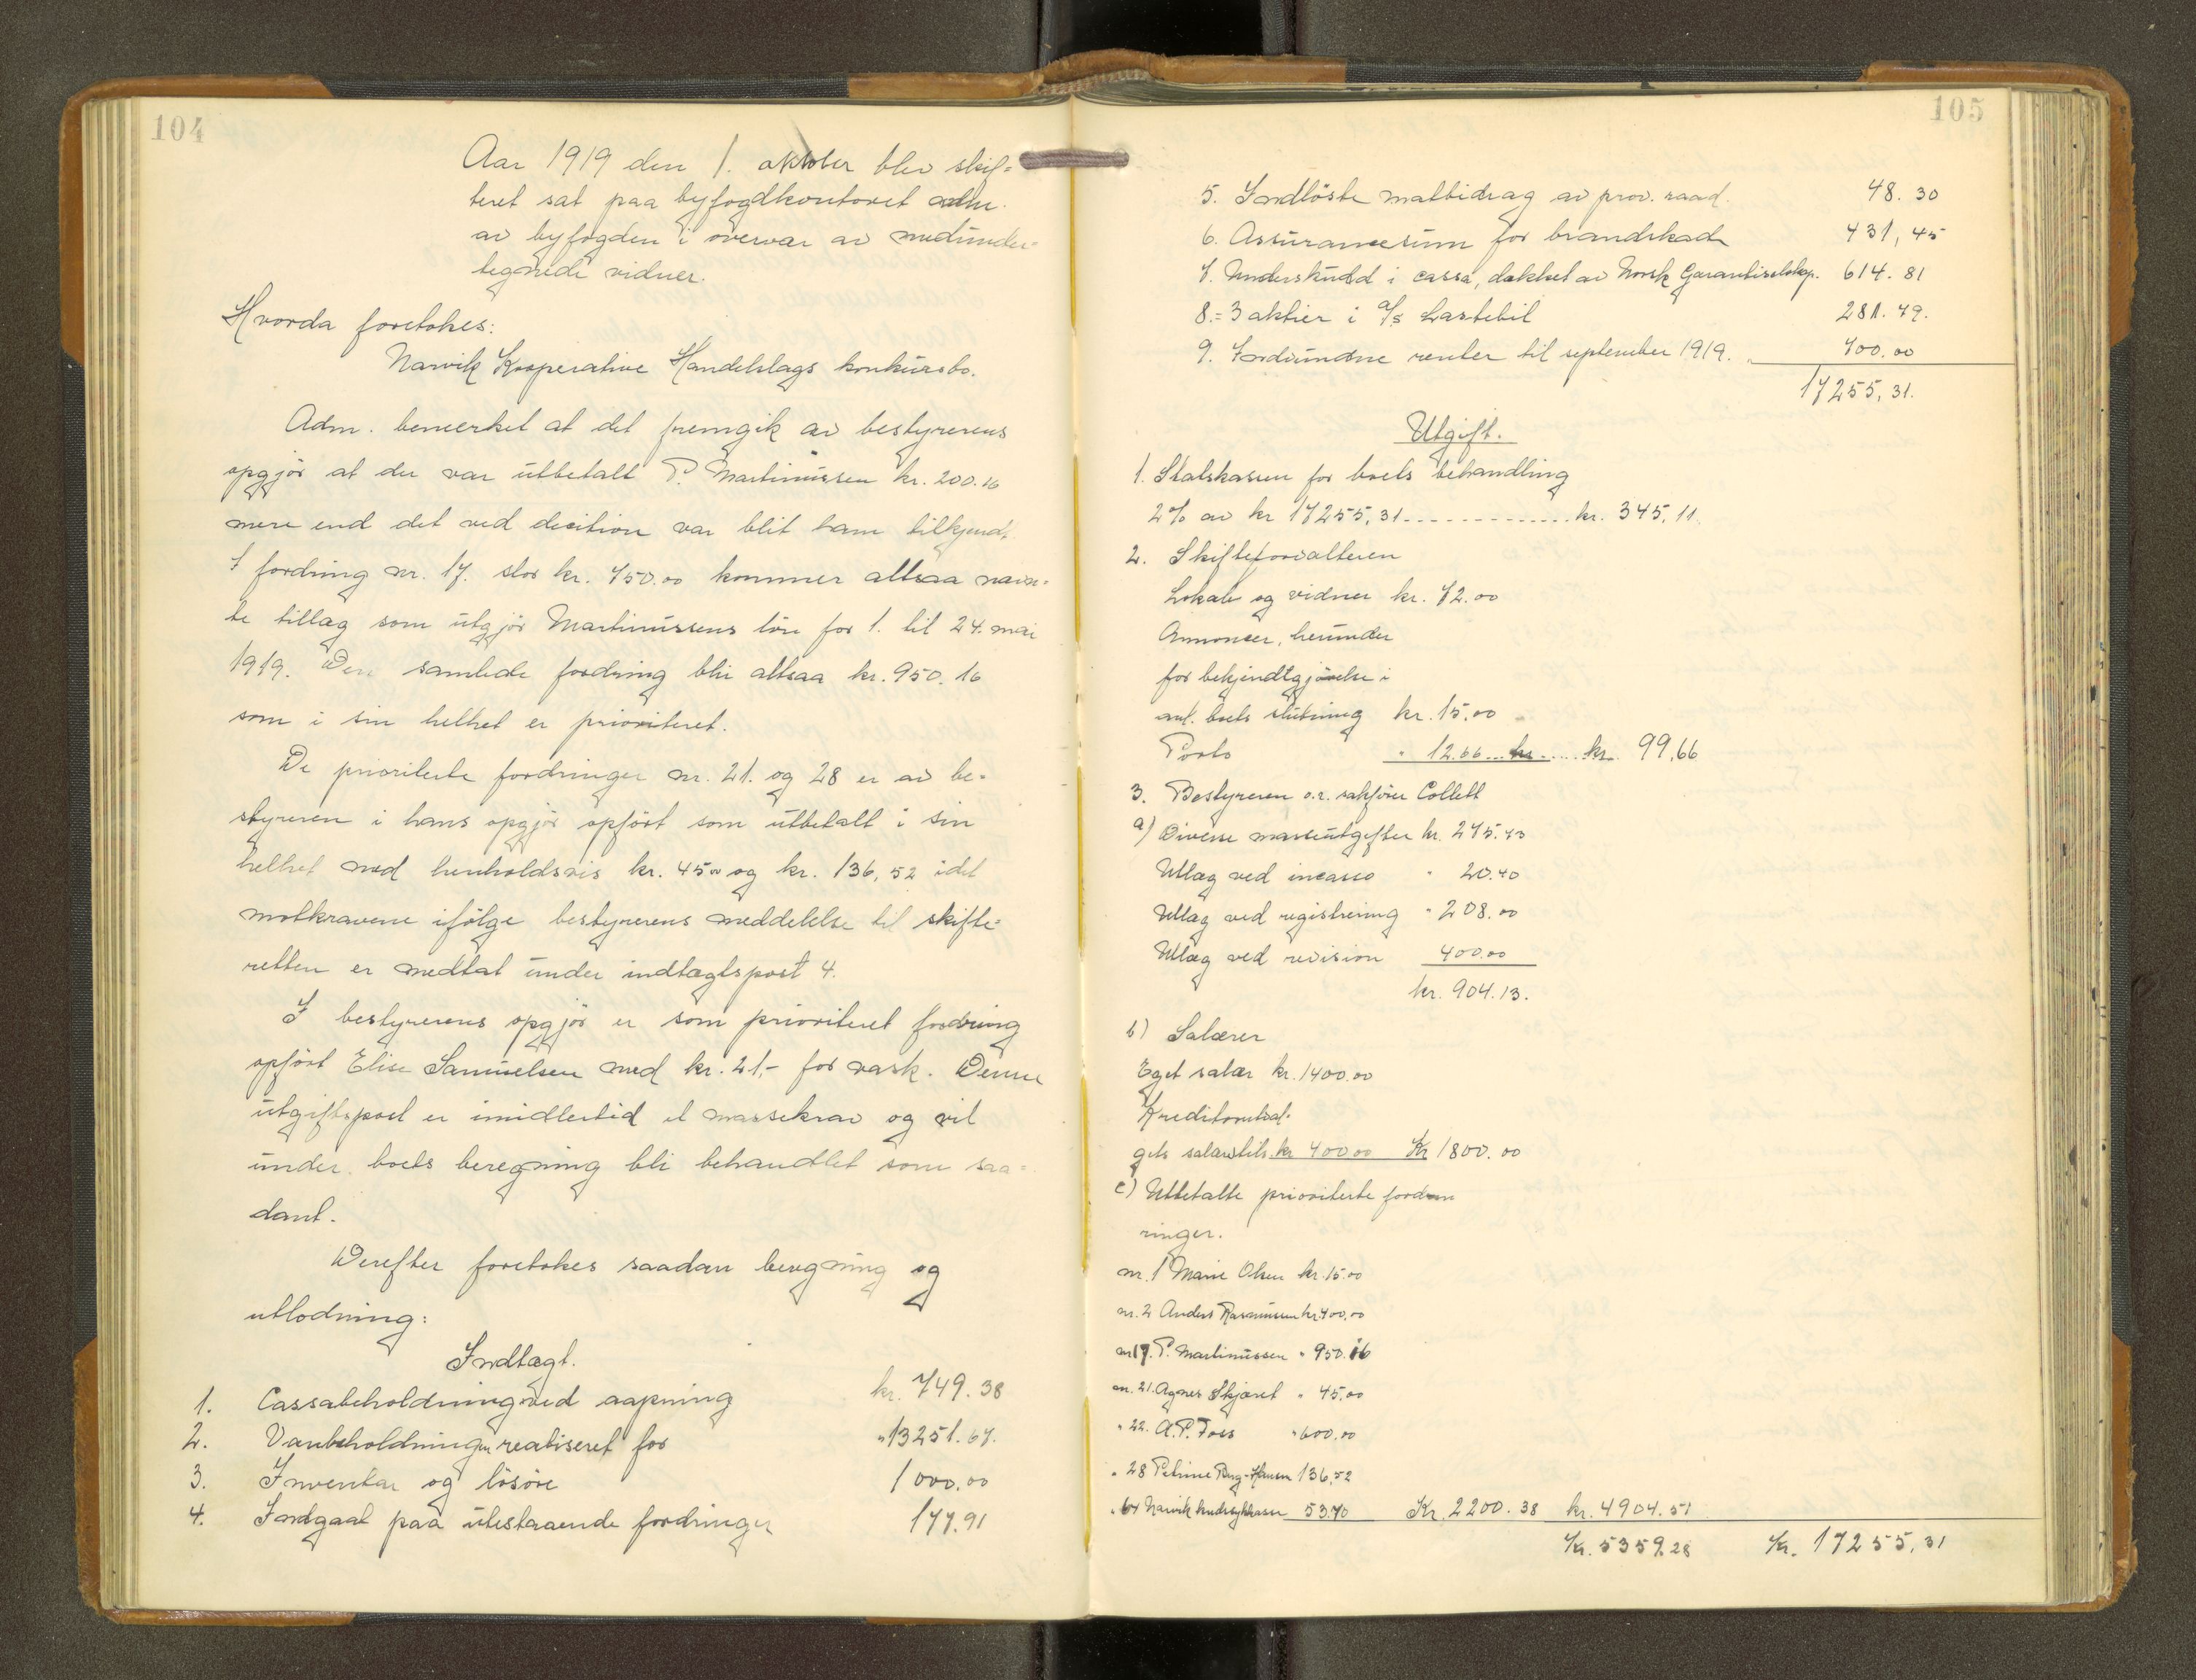 104
Aar 1919 den 1. oktober blev skif=
teret sat paa byfogdkontoret adm.
av byfogden i overvær av medunder=
tegnede vidner.
Hvorda foretokes:
Narvik Kooperative Handelslags konkursbo.
Adm. bemerket at det fremgik av bestyrerens
opgjör at der var utbetalt P. Martinussen kr. 200.16
mere end det ved decition var blit ham tilkjendt.
I fordring nr. 17. stor kr. 750.00 kommer altsaa nævn=
te tillæg som utgjör Martinussens lön for 1. til 24. mai
1919. Den samlede fordring blir altsaa kr. 950.16
som i sin helhet er prioriteret.
De prioriterte fordringer nr. 21. og 28 er av be=
styreren i hans opgjör opfört som utbetalt i sin
helhet med henholdsvis kr. 45.00 og kr. 136,52 idet
motkravene ifölge bestyrerens meddelelse til skifte=
retten er medtat under indtægtspost 4.
I bestyrerens opgjör er som prioriteret fordring
opfört Elise Samuelsen med kr. 21,- for vask. Denne
utgiftspost er imidlertid et massekrav og vil
under boets beregning bli behandlet som saa=
dant.
Derefter foretokes saadan beregning og
utlodning:
Indtægt.
1. Cassabeholdning ved aapning kr. 749.38
2. Varebeholdningen realiseret for " 13251.67.
3. Inventar og lösöre 1000.00
4. Indgaat paa utestaaende fordringer 177.91
105
5. Indlöste matbidrag av prov. raad. 48.30
6. Assurancesum for brandskade 431,45
7. Underskudd i cassa, dækket av Norsk Garantiselskap. 614.81
8.= 3 aktier i A/s Lastebil 281.79.
9. Indvundne renter til september 1919. " 700.00
17255,31.
Utgift.
1. Statskassen for boets behandling
2% av kr 17255,31 kr. 345,11.
2. Skifteforvalteren
Lokale og vidner kr. 72.00
Annoncer, herunder
for bekjendtgjörelse i
anl. boets slutning kr. 15.00
Porto " 12.66 kr. kr. 99,66
3. Bestyreren o.r. sakförer Collett
a) Diverse masseutgifter kr. 275.73
Utlæg ved incasso " 20.40
Utlæg ved registrering " 208.00
Utlæg ved revision 400.00
kr. 904.13.
b) Salærer
Eget salær kr. 1400.00
Kreditorutval=
gets salær tils. kr 400.00 Kr 1800.00
c) Utbetalte prioriterte ford
ringer.
nr. 1 Marie Olsen kr. 15.00
nr. 2 Anders Rasmussen kr. 400.00
nr 17. P. Martinussen " 950.16
nr. 21. Agnes Skjæret " 45.00
" 22. A.P. Foss " 600.00
" 28 Petrine Hansen 136,52
" 64 Narvik kredssykkasse 53.70 Kr. 2200.38 kr. 4904.51
Kr. 5359.28 Kr. 17255,31